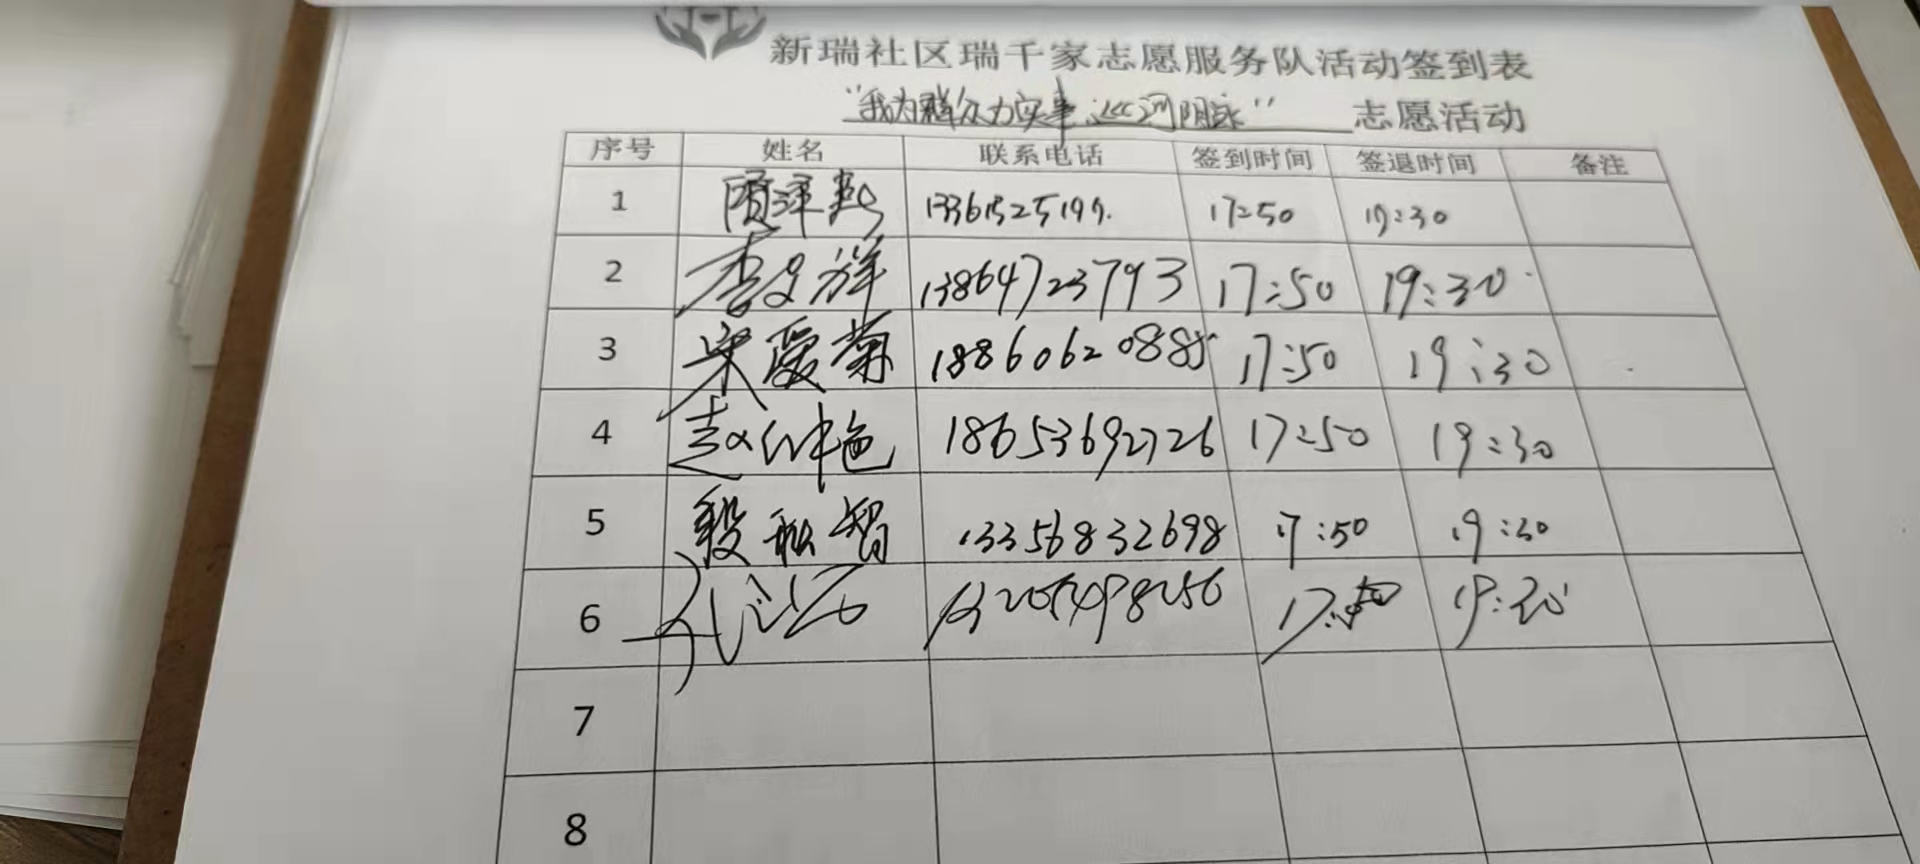 新瑞社区瑞千家志愿服务队活动签到表
“我为群众办实事 巡河” 志愿活动
序号 姓名 联系电话 签到时间 签退时间 备注
1 17:50 19:30
2 李文祥 13864723793 17:50 19:30
3 宋爱菊 18860620885 17:50 19:30
4 赵红艳 18653692726 17:50 19:30
5 段 智 13356832698 17:50 19:30
6 17:50
7
8